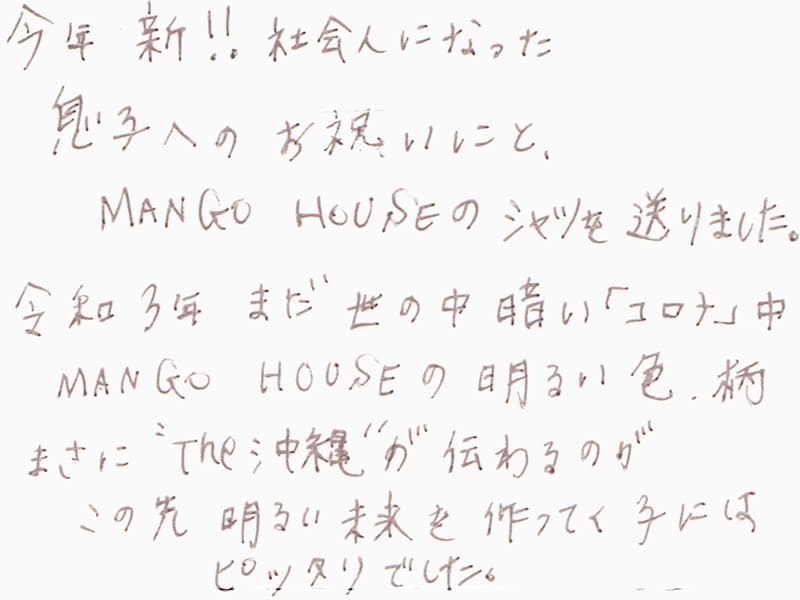 今年 新!! 社会人になった
息子へのお祝いにと、
MANGO HOUSEのシャツを送りました。
令和3年 まだ世の中暗い「コロナ」中
MANGO HOUSEの明るい色、柄
まさに"The沖縄"が伝わるのが
この先 明るい未来を作ってく子には
ピッタリでした。